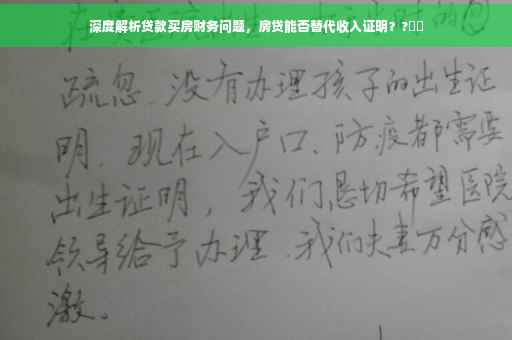 深度解析贷款买房财务问题，房贷能否替代收入证明？?
疏忽、没有办理孩子的出生证
明、现在入户口、防疫都需要
出生证明，我们恳切希望医院
领导给予办理、我们夫妻万分感
激。